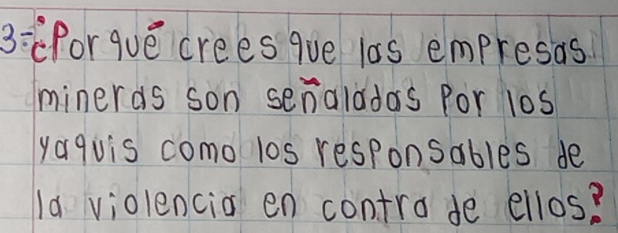 3= ¿Porqué crees que las empresas
mineras son señaladas por los
yaquis como los responsables de
la violencia en contra de ellos?